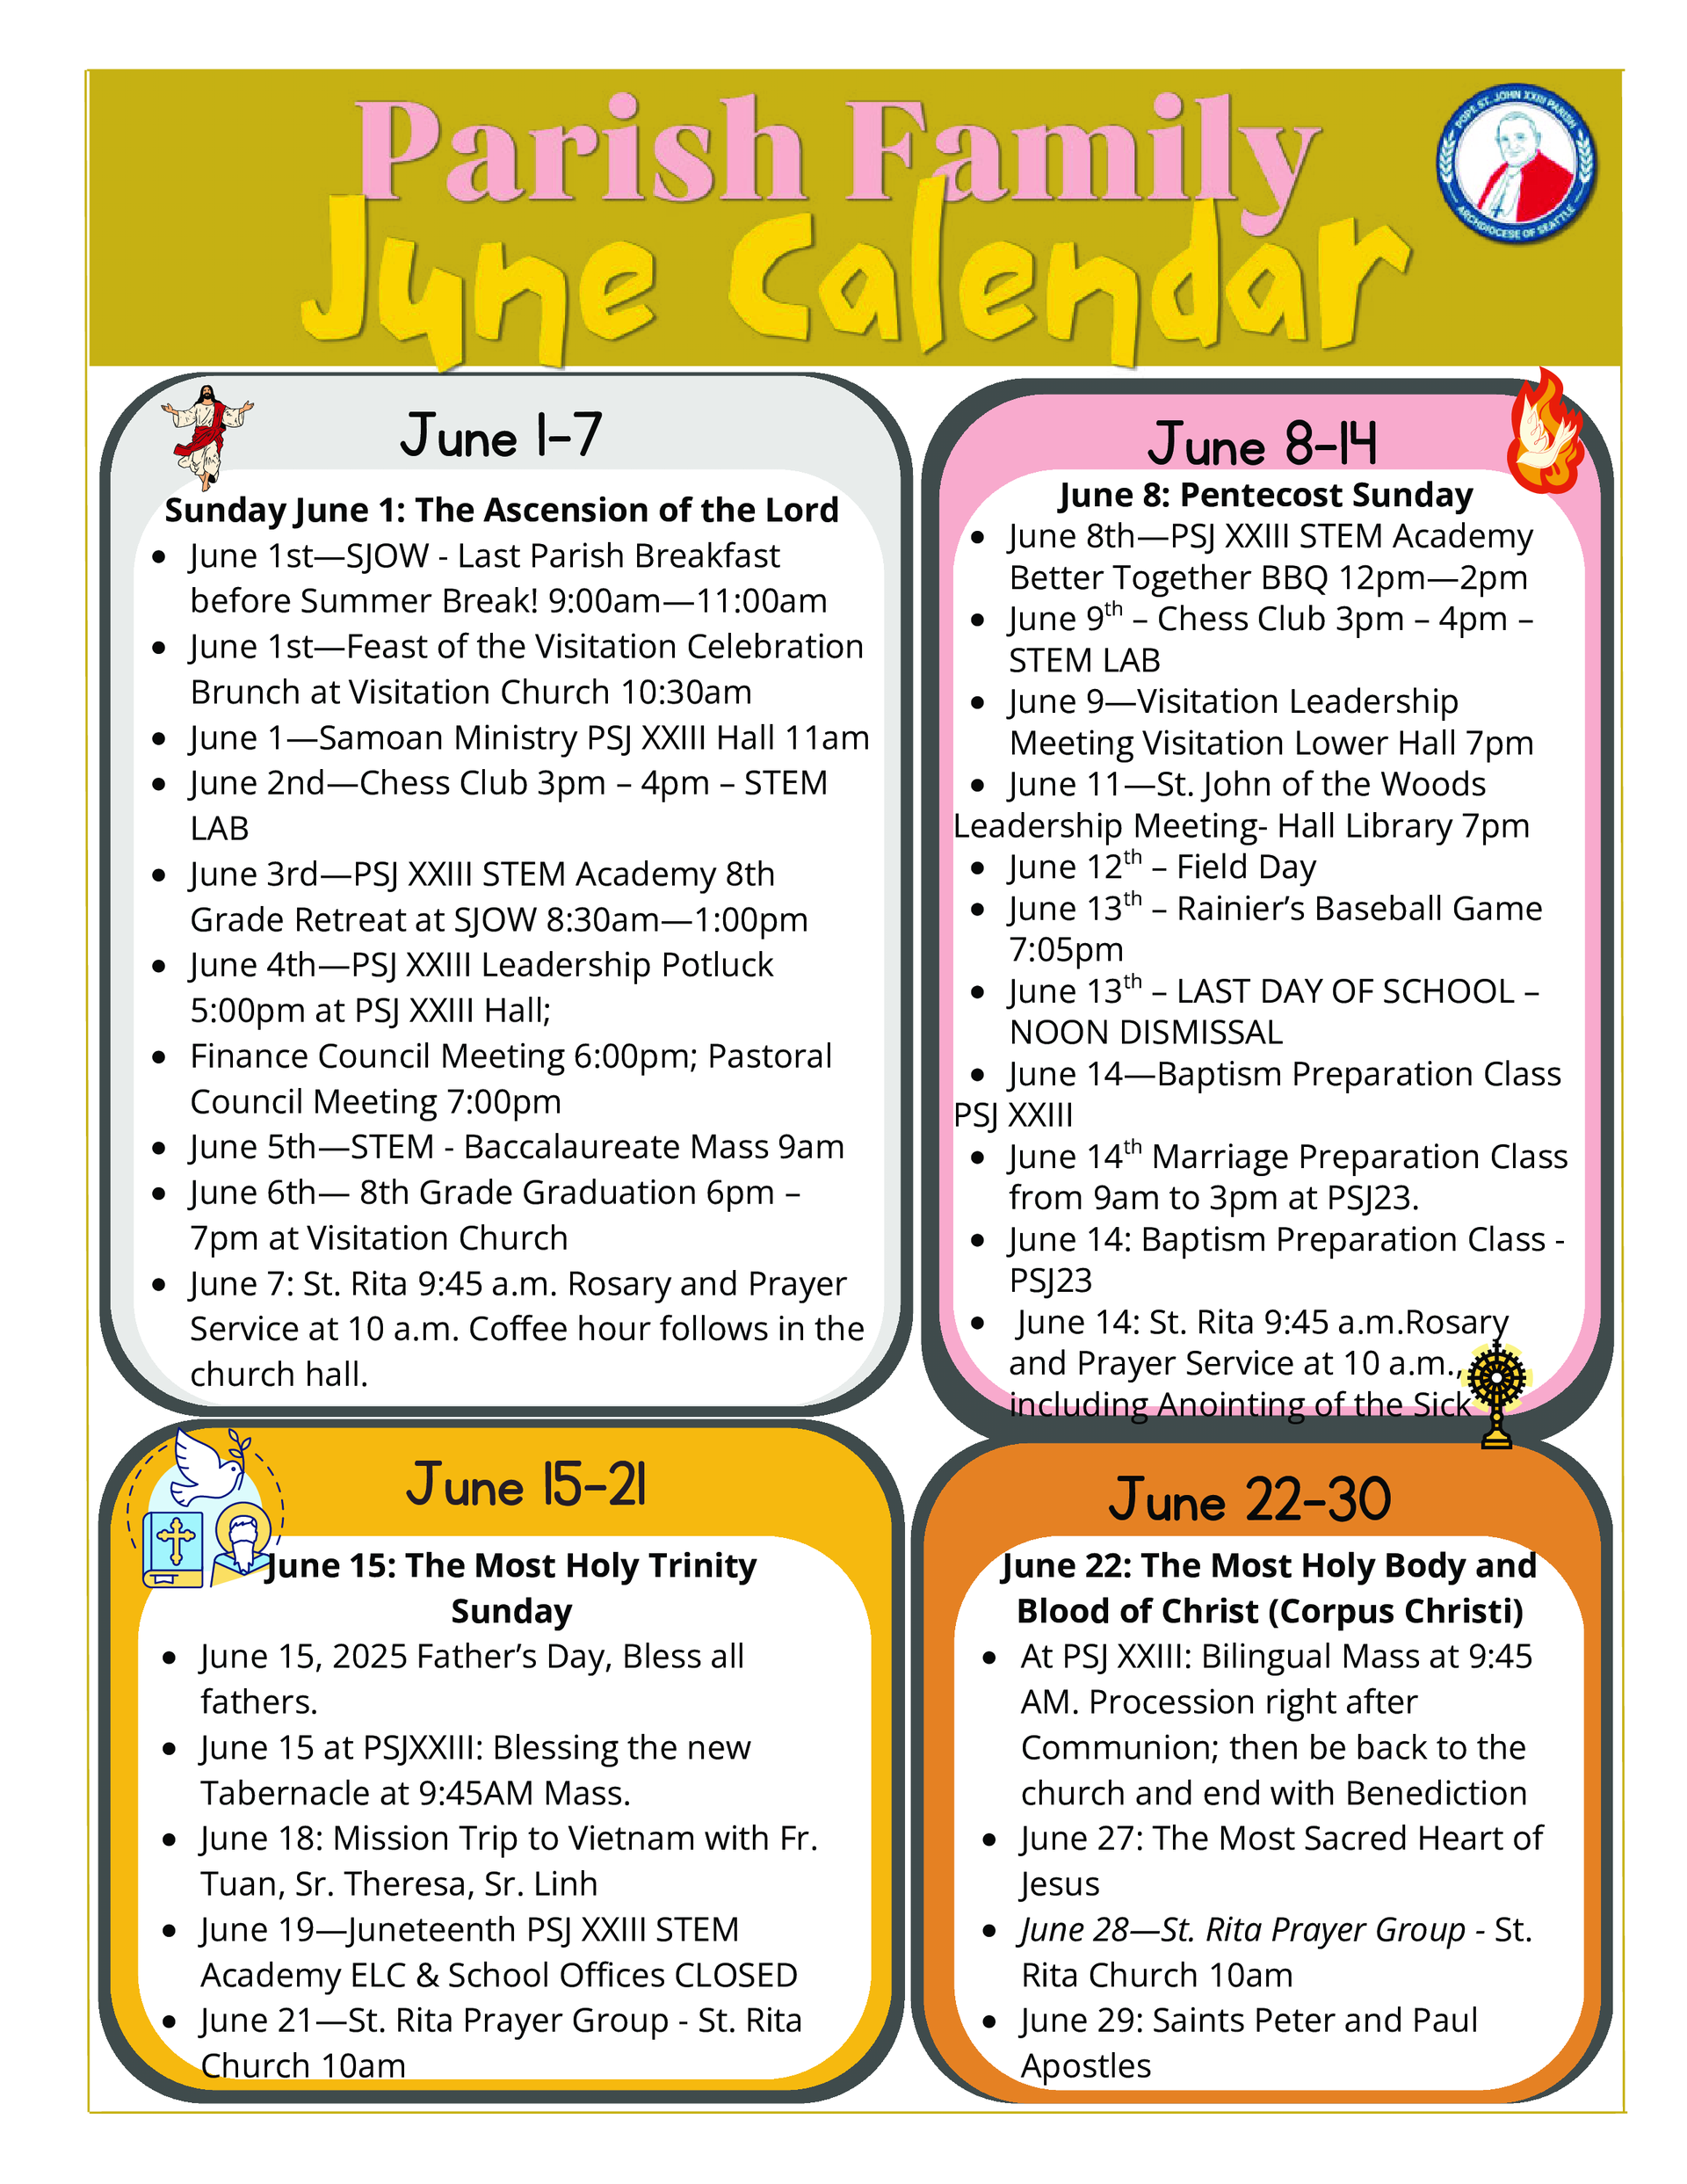 Parish Family
June Calendar
POPE ST. JOHN XXIII PARISH
ARCHDIOCESE OF SEATTLE
June 1-7
Sunday June 1: The Ascension of the Lord
• June 1st—SJOW - Last Parish Breakfast
before Summer Break! 9:00am—11:00am
• June 1st—Feast of the Visitation Celebration
Brunch at Visitation Church 10:30am
• June 1—Samoan Ministry PSJ XXIII Hall 11am
• June 2nd—Chess Club 3pm – 4pm – STEM
LAB
• June 3rd—PSJ XXIII STEM Academy 8th
Grade Retreat at SJOW 8:30am—1:00pm
• June 4th—PSJ XXIII Leadership Potluck
5:00pm at PSJ XXIII Hall;
• Finance Council Meeting 6:00pm; Pastoral
Council Meeting 7:00pm
• June 5th—STEM - Baccalaureate Mass 9am
• June 6th— 8th Grade Graduation 6pm –
7pm at Visitation Church
• June 7: St. Rita 9:45 a.m. Rosary and Prayer
Service at 10 a.m. Coffee hour follows in the
church hall.
June 8-14
June 8: Pentecost Sunday
• June 8th—PSJ XXIII STEM Academy
Better Together BBQ 12pm—2pm
• June 9th – Chess Club 3pm – 4pm –
STEM LAB
• June 9—Visitation Leadership
Meeting Visitation Lower Hall 7pm
• June 11—St. John of the Woods
Leadership Meeting- Hall Library 7pm
• June 12th – Field Day
• June 13th – Rainier’s Baseball Game
7:05pm
• June 13th – LAST DAY OF SCHOOL –
NOON DISMISSAL
• June 14—Baptism Preparation Class
PSJ XXIII
• June 14th Marriage Preparation Class
from 9am to 3pm at PSJ23.
• June 14: Baptism Preparation Class -
PSJ23
• June 14: St. Rita 9:45 a.m.Rosary
and Prayer Service at 10 a.m.,
including Anointing of the Sick
June 15-21
June 15: The Most Holy Trinity
Sunday
• June 15, 2025 Father’s Day, Bless all
fathers.
• June 15 at PSJXXIII: Blessing the new
Tabernacle at 9:45AM Mass.
• June 18: Mission Trip to Vietnam with Fr.
Tuan, Sr. Theresa, Sr. Linh
• June 19—Juneteenth PSJ XXIII STEM
Academy ELC & School Offices CLOSED
• June 21—St. Rita Prayer Group - St. Rita
Church 10am
June 22-30
June 22: The Most Holy Body and
Blood of Christ (Corpus Christi)
• At PSJ XXIII: Bilingual Mass at 9:45
AM. Procession right after
Communion; then be back to the
church and end with Benediction
• June 27: The Most Sacred Heart of
Jesus
• June 28—St. Rita Prayer Group - St.
Rita Church 10am
• June 29: Saints Peter and Paul
Apostles